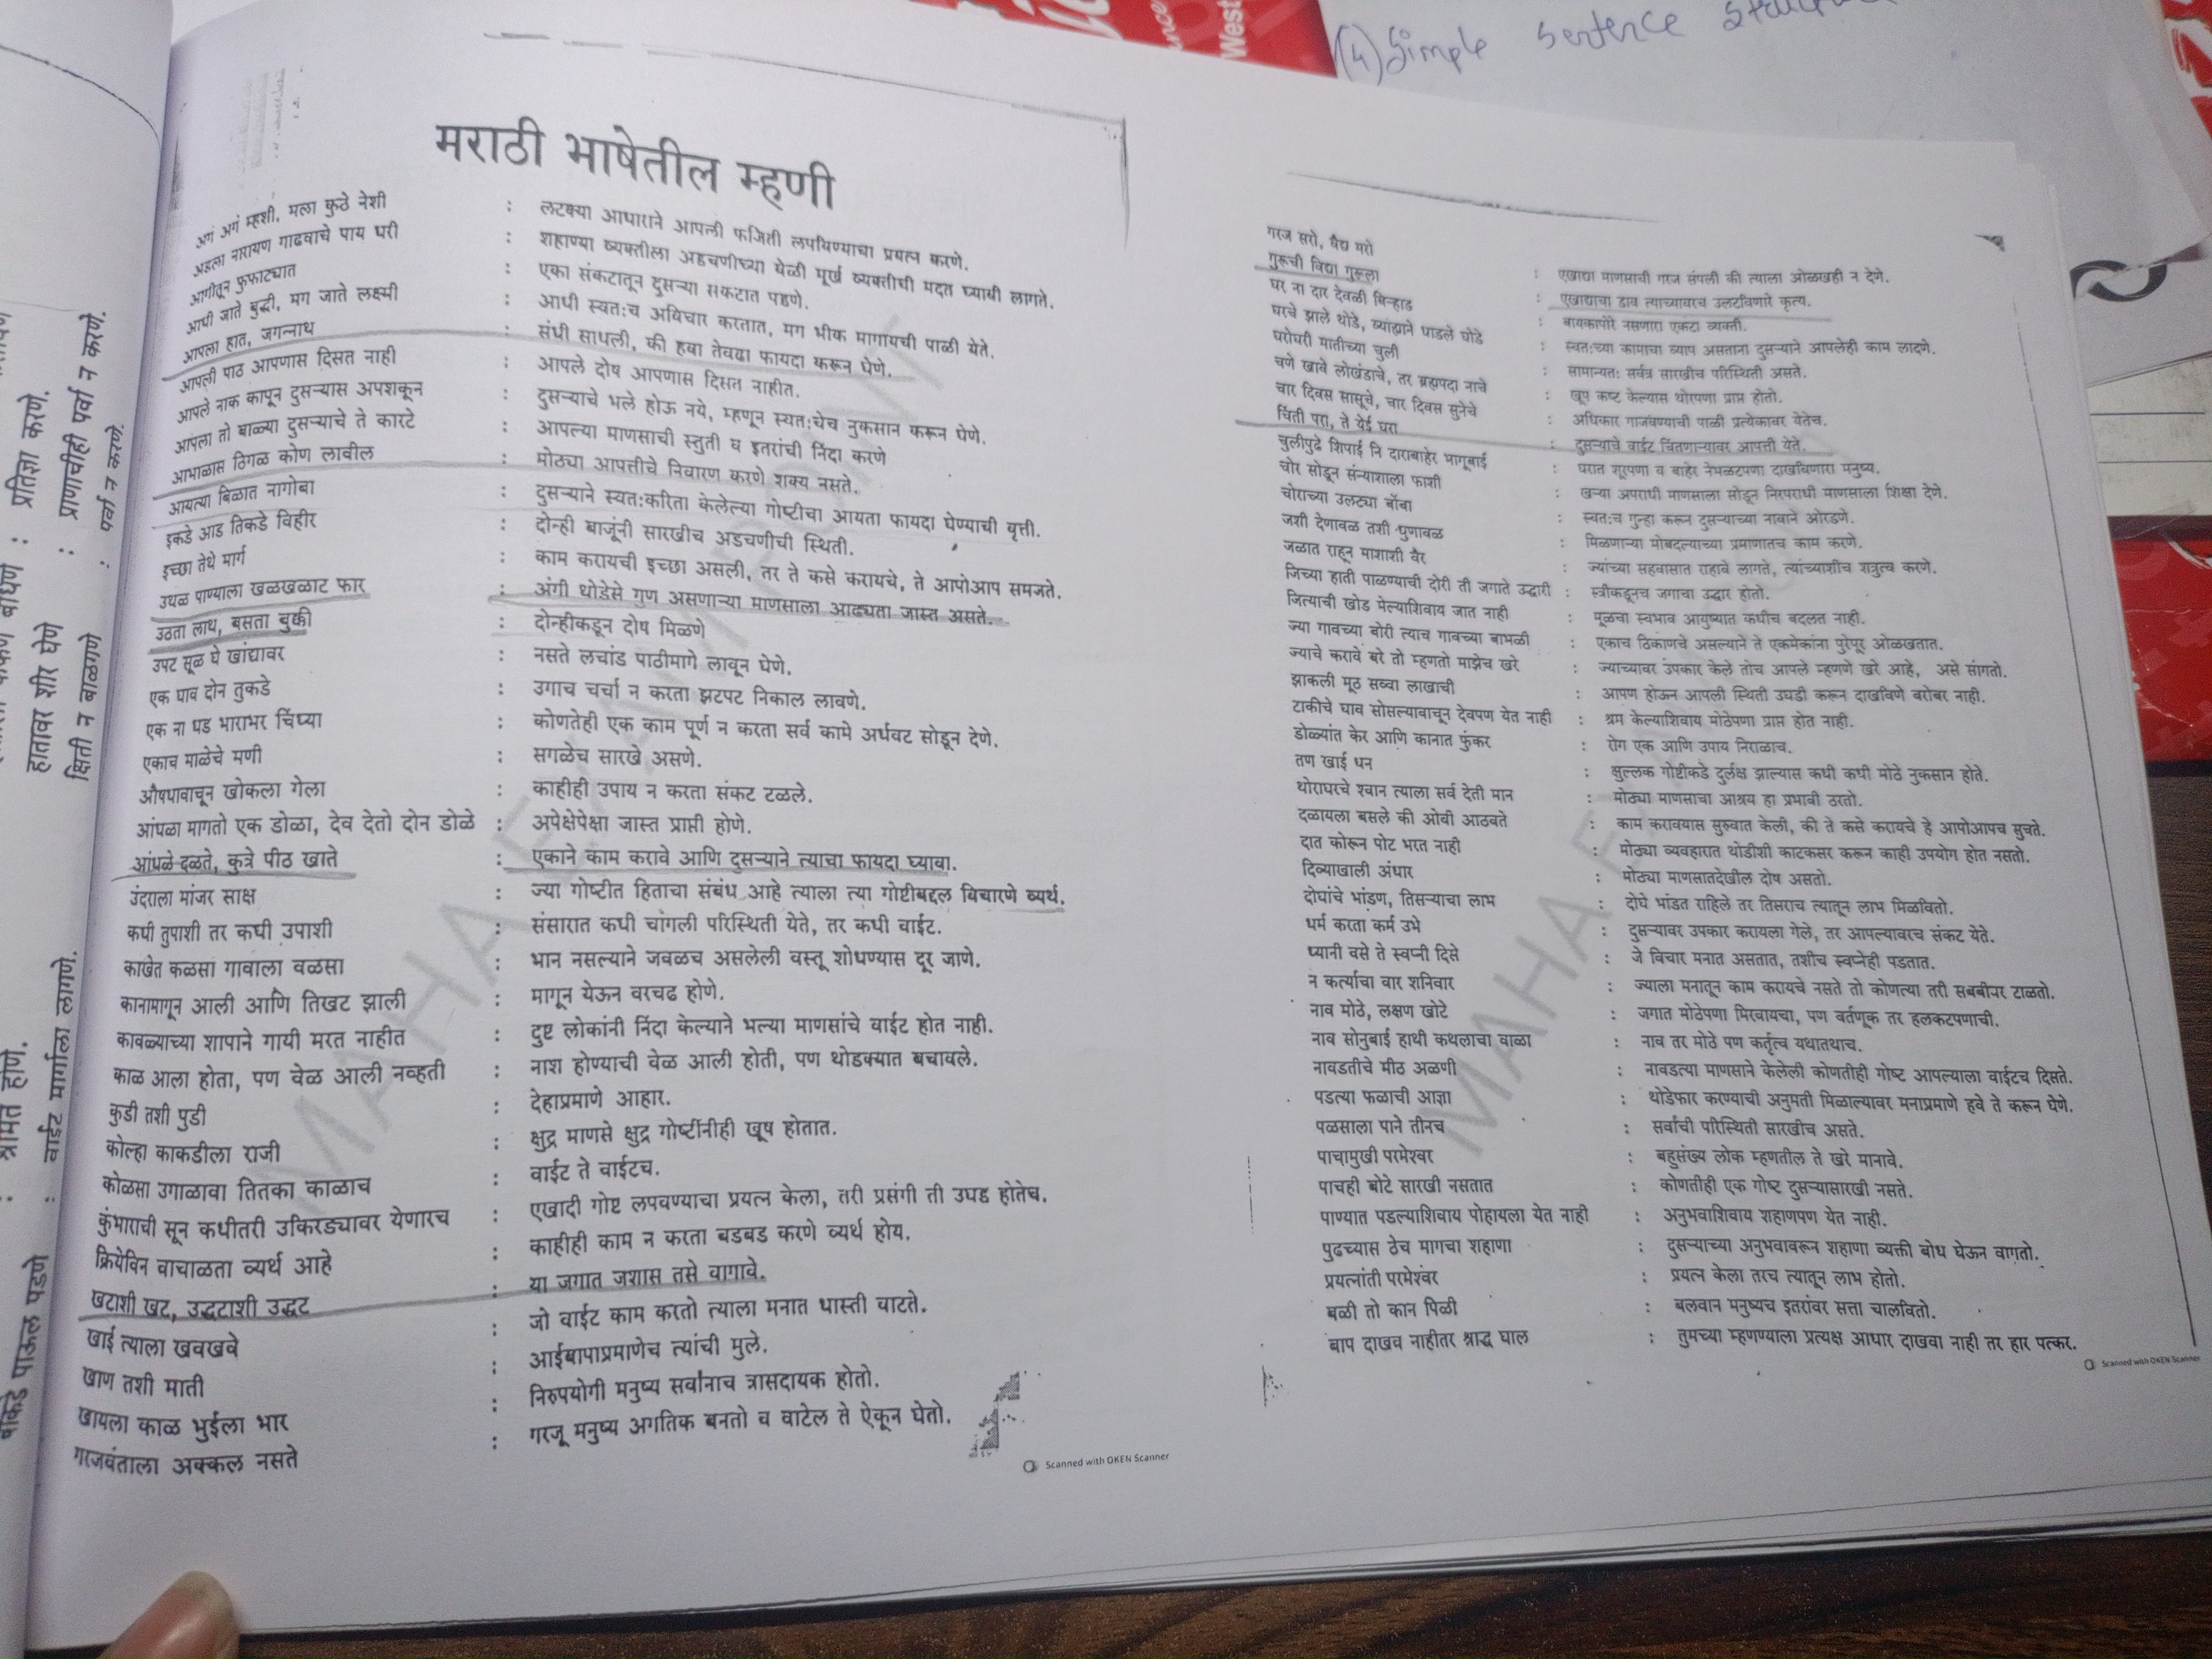 (4) Simple sentence
West
मराठी भाषेतील म्हणी
अगं अगं म्हशी, मला कुठे नेशी : लटक्या आधाराने आपली फजिती लपविण्याचा प्रयत्न करणे.
अडला नारायण गाढवाचे पाय धरी : शहाण्या व्यक्तीला अडचणीच्या वेळी मूर्ख व्यक्तीची मदत घ्यावी लागते.
आगीतून फुफाट्यात : एका संकटातून दुसऱ्या संकटात पडणे.
आधी जाते बुद्धी, मग जाते लक्ष्मी : आधी स्वतःच अविचार करतात, मग भीक मागायची पाळी येते.
आपला हात, जगन्नाथ : संधी साधली, की हवा तेवढा फायदा करून घेणे.
आपली पाठ आपणास दिसत नाही : आपले दोष आपणास दिसत नाहीत.
आपले नाक कापून दुसऱ्यास अपशकून : दुसऱ्याचे भले होऊ नये, म्हणून स्वतःचेच नुकसान करून घेणे.
आपला तो बाळ्या दुसऱ्याचे ते कारटे : आपल्या माणसाची स्तुती व इतरांची निंदा करणे
आभाळास ठिगळ कोण लावील : मोठ्या आपत्तीचे निवारण करणे शक्य नसते.
आयत्या बिळात नागोबा : दुसऱ्याने स्वतःकरिता केलेल्या गोष्टीचा आयता फायदा घेण्याची वृत्ती.
इकडे आड तिकडे विहीर : दोन्ही बाजूंनी सारखीच अडचणीची स्थिती.
इच्छा तेथे मार्ग : काम करायची इच्छा असली, तर ते कसे करायचे, ते आपोआप समजते.
उथळ पाण्याला खळखळाट फार : अंगी थोडेसे गुण असणाऱ्या माणसाला आढ्यता जास्त असते.
उठता लाथ, बसता बुक्की : दोन्हीकडून दोष मिळणे
उपट सूळ घे खांद्यावर : नसते लचांड पाठीमागे लावून घेणे.
एक घाव दोन तुकडे : उगाच चर्चा न करता झटपट निकाल लावणे.
एक ना धड भाराभर चिंध्या : कोणतेही एक काम पूर्ण न करता सर्व कामे अर्धवट सोडून देणे.
एकाच माळेचे मणी : सगळेच सारखे असणे.
औषधावाचून खोकला गेला : काहीही उपाय न करता संकट टळले.
आंधळा मागतो एक डोळा, देव देतो दोन डोळे : अपेक्षेपेक्षा जास्त प्राप्ती होणे.
आंधळे दळते, कुत्रे पीठ खाते : एकाने काम करावे आणि दुसऱ्याने त्याचा फायदा घ्यावा.
उंदराला मांजर साक्ष : ज्या गोष्टीत हिताचा संबंध आहे त्याला त्या गोष्टीबद्दल विचारणे व्यर्थ.
कधी तुपाशी तर कधी उपाशी : संसारात कधी चांगली परिस्थिती येते, तर कधी वाईट.
काखेत कळसा गावाला वळसा : भान नसल्याने जवळच असलेली वस्तू शोधण्यास दूर जाणे.
कानामागून आली आणि तिखट झाली : मागून येऊन वरचढ होणे.
कावळ्याच्या शापाने गायी मरत नाहीत : दुष्ट लोकांनी निंदा केल्याने भल्या माणसांचे वाईट होत नाही.
काळ आला होता, पण वेळ आली नव्हती : नाश होण्याची वेळ आली होती, पण थोडक्यात बचावले.
कुडी तशी पुडी : देहाप्रमाणे आहार.
कोल्हा काकडीला राजी : क्षुद्र माणसे क्षुद्र गोष्टींनीही खूष होतात.
कोळसा उगाळावा तितका काळाच : वाईट ते वाईटच.
कुंभाराची सून कधीतरी उकिरड्यावर येणारच : एखादी गोष्ट लपवण्याचा प्रयत्न केला, तरी प्रसंगी ती उघड होतेच.
क्रियेविन वाचाळता व्यर्थ आहे : काहीही काम न करता बडबड करणे व्यर्थ होय.
खटाशी खट, उद्धटाशी उद्धट : या जगात जशास तसे वागावे.
खाई त्याला खवखवे : जो वाईट काम करतो त्याला मनात धास्ती वाटते.
खाण तशी माती : आईबापाप्रमाणेच त्यांची मुले.
खायला काळ भुईला भार : निरुपयोगी मनुष्य सर्वांनाच त्रासदायक होतो.
गरजवंताला अक्कल नसते : गरजू मनुष्य अगतिक बनतो व वाटेल ते ऐकून घेतो.
Scanned with OKEN Scanner
गरज सरो, वैद्य मरो : एखाद्या माणसाची गरज संपली की त्याला ओळखही न देणे.
गुरूची विद्या गुरूला : एखाद्याचा डाव त्याच्यावरच उलटविणारे कृत्य.
घर ना दार देवळी बिऱ्हाड : बायकापोरे नसणारा एकटा व्यक्ती.
घरचे झाले थोडे, व्याह्याने धाडले घोडे : स्वतःच्या कामाचा व्याप असताना दुसऱ्याने आपलेही काम लादणे.
घरोघरी मातीच्या चुली : सामान्यतः सर्वत्र सारखीच परिस्थिती असते.
चणे खावे लोखंडाचे, तर ब्रह्मपदा नाचे : खूप कष्ट केल्यास थोरपणा प्राप्त होतो.
चार दिवस सासूचे, चार दिवस सुनेचे : अधिकार गाजवण्याची पाळी प्रत्येकावर येतेच.
चिंती परा, ते येई घरा : दुसऱ्याचे वाईट चिंतणाऱ्यावर आपत्ती येते.
चुलीपुढे शिपाई नि दाराबाहेर भागूबाई : घरात शूरपणा व बाहेर नेभळटपणा दाखविणारा मनुष्य.
चोर सोडून संन्याशाला फाशी : खऱ्या अपराधी माणसाला सोडून निरपराधी माणसाला शिक्षा देणे.
चोराच्या उलट्या बोंबा : स्वतःच गुन्हा करून दुसऱ्याच्या नावाने ओरडणे.
जशी देणावळ तशी धुणावळ : मिळणाऱ्या मोबदल्याच्या प्रमाणातच काम करणे.
जळात राहून माशाशी वैर : ज्यांच्या सहवासात राहावे लागते, त्यांच्याशीच शत्रुत्व करणे.
जिच्या हाती पाळण्याची दोरी ती जगाते उद्धारी : स्त्रीकडूनच जगाचा उद्धार होतो.
जित्याची खोड मेल्याशिवाय जात नाही : मूळचा स्वभाव आयुष्यात कधीच बदलत नाही.
ज्या गावच्या बोरी त्याच गावच्या बाभळी : एकाच ठिकाणचे असल्याने ते एकमेकांना पुरेपूर ओळखतात.
ज्याचे करावे बरे तो म्हणतो माझेच खरे : ज्याच्यावर उपकार केले तोच आपले म्हणणे खरे आहे, असे सांगतो.
झाकली मूठ सव्वा लाखाची : आपण होऊन आपली स्थिती उघडी करून दाखविणे बरोबर नाही.
टाकीचे घाव सोसल्यावाचून देवपण येत नाही : श्रम केल्याशिवाय मोठेपणा प्राप्त होत नाही.
डोळ्यांत केर आणि कानात फुंकर : रोग एक आणि उपाय निराळाच.
तण खाई धन : क्षुल्लक गोष्टीकडे दुर्लक्ष झाल्यास कधी कधी मोठे नुकसान होते.
थोराघरचे श्वान त्याला सर्व देती मान : मोठ्या माणसाचा आश्रय हा प्रभावी ठरतो.
दळायला बसले की ओवी आठवते : काम करावयास सुरुवात केली, की ते कसे करायचे हे आपोआपच सुचते.
दात कोरून पोट भरत नाही : मोठ्या व्यवहारात थोडीशी काटकसर करून काही उपयोग होत नसतो.
दिव्याखाली अंधार : मोठ्या माणसातदेखील दोष असतो.
दोघांचे भांडण, तिसऱ्याचा लाभ : दोघे भांडत राहिले तर तिसराच त्यातून लाभ मिळवितो.
धर्म करता कर्म उभे : दुसऱ्यावर उपकार करायला गेले, तर आपल्यावरच संकट येते.
ध्यानी वसे ते स्वप्नी दिसे : जे विचार मनात असतात, तशीच स्वप्नेही पडतात.
न कर्त्याचा वार शनिवार : ज्याला मनातून काम करायचे नसते तो कोणत्या तरी सबबीवर टाळतो.
नाव मोठे, लक्षण खोटे : जगात मोठेपणा मिरवायचा, पण वर्तणूक तर हलकटपणाची.
नाव सोनुबाई हाथी कथलाचा वाळा : नाव तर मोठे पण कर्तृत्व यथातथाच.
नावडतीचे मीठ अळणी : नावडत्या माणसाने केलेली कोणतीही गोष्ट आपल्याला वाईटच दिसते.
पडत्या फळाची आज्ञा : थोडेफार करण्याची अनुमती मिळाल्यावर मनाप्रमाणे हवे ते करून घेणे.
पळसाला पाने तीनच : सर्वांची परिस्थिती सारखीच असते.
पाचामुखी परमेश्वर : बहुसंख्य लोक म्हणतील ते खरे मानावे.
पाचही बोटे सारखी नसतात : कोणतीही एक गोष्ट दुसऱ्यासारखी नसते.
पाण्यात पडल्याशिवाय पोहायला येत नाही : अनुभवाशिवाय शहाणपण येत नाही.
पुढच्यास ठेच मागचा शहाणा : दुसऱ्याच्या अनुभवावरून शहाणा व्यक्ती बोध घेऊन वागतो.
प्रयत्नांती परमेश्वर : प्रयत्न केला तरच त्यातून लाभ होतो.
बळी तो कान पिळी : बलवान मनुष्यच इतरांवर सत्ता चालवितो.
बाप दाखव नाहीतर श्राद्ध घाल : तुमच्या म्हणण्याला प्रत्यक्ष आधार दाखवा नाही तर हार पत्कर.
Scanned with OKEN Scanner
प्रतिज्ञा करणे.
हातावर शीर घेणे : प्राणाचीही पर्वा न करणे.
क्षिती न बाळगणे : पर्वा न करणे.
वाकडे पाऊल पडणे : वाईट मार्गाला लागणे.